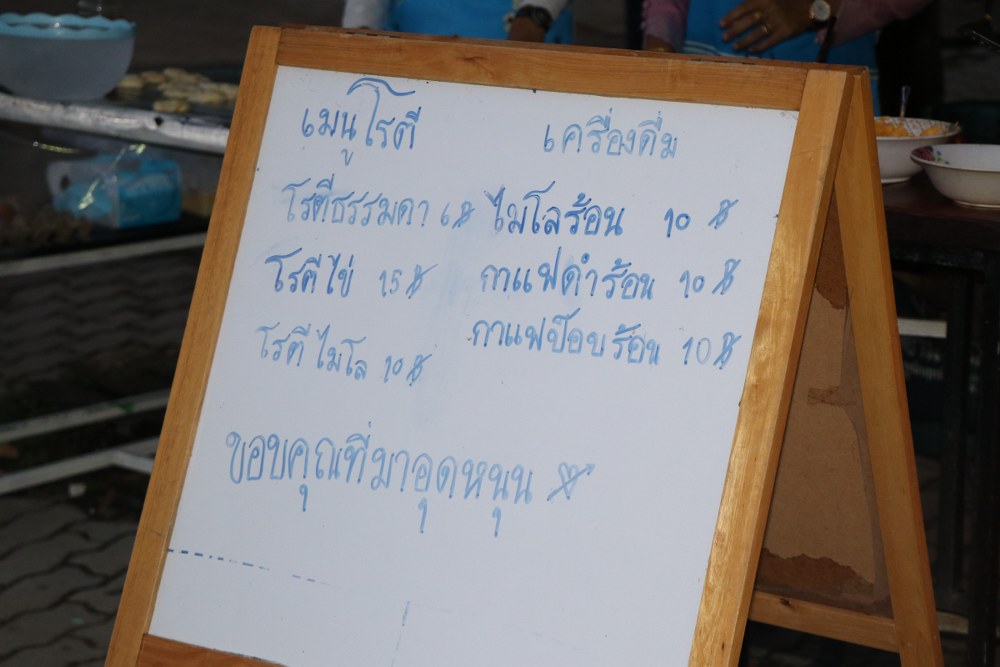 เมนูโรตี
เครื่องดื่ม
โรตีธรรมดา 6฿
ไมโลร้อน 10 ฿
โรตีไข่ 15฿
กาแฟดำร้อน 10 ฿
โรตี ไมโล 10฿
กาแฟป๊อบร้อน 10฿
ขอบคุณที่มาอุดหนุน